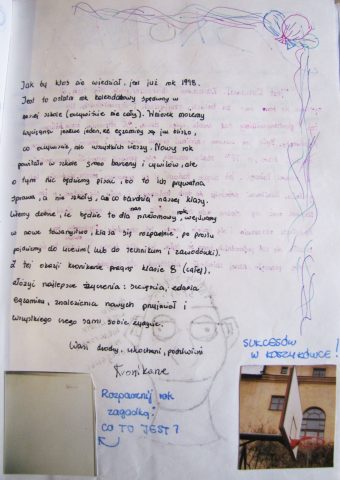 Jak by ktoś nie wiedział, jest już rok 1998.
Jest to ostatni rok kalendarzowy spędzony w
naszej szkole (oczywiście nie cały). Wniosek możemy
wyciągnąć jeden, że egzaminy są już blisko,
co oczywiście nie wszystkich cieszy. Nowy rok
powitało w szkole grono barciny i cywilów, ale
o tym nie będziemy pisać, bo to ich prywatna
sprawa, a nie szkoły, a co bardziej naszej klasy.
Wiemy dobrze, że będzie to dla nas rok, wejdziemy
w nowe towarzystwo, klasa się rozpadnie, po prostu
pójdziemy do liceum (lub do technikum i zawodówki).
Z tej okazji kronikarze pragną klasie 8 (całej)
złożyć najlepsze życzenia: szczęścia, zdania
egzaminu, znalezienia nowych przyjaciół i
wszystkiego czego sami sobie życzycie.
Wasi drodzy, ukochani,
Kronikarze
SUKCESÓW
W KOSZYKÓWCE!
Rozpocznij rok
zagadką:
CO TO JEST?